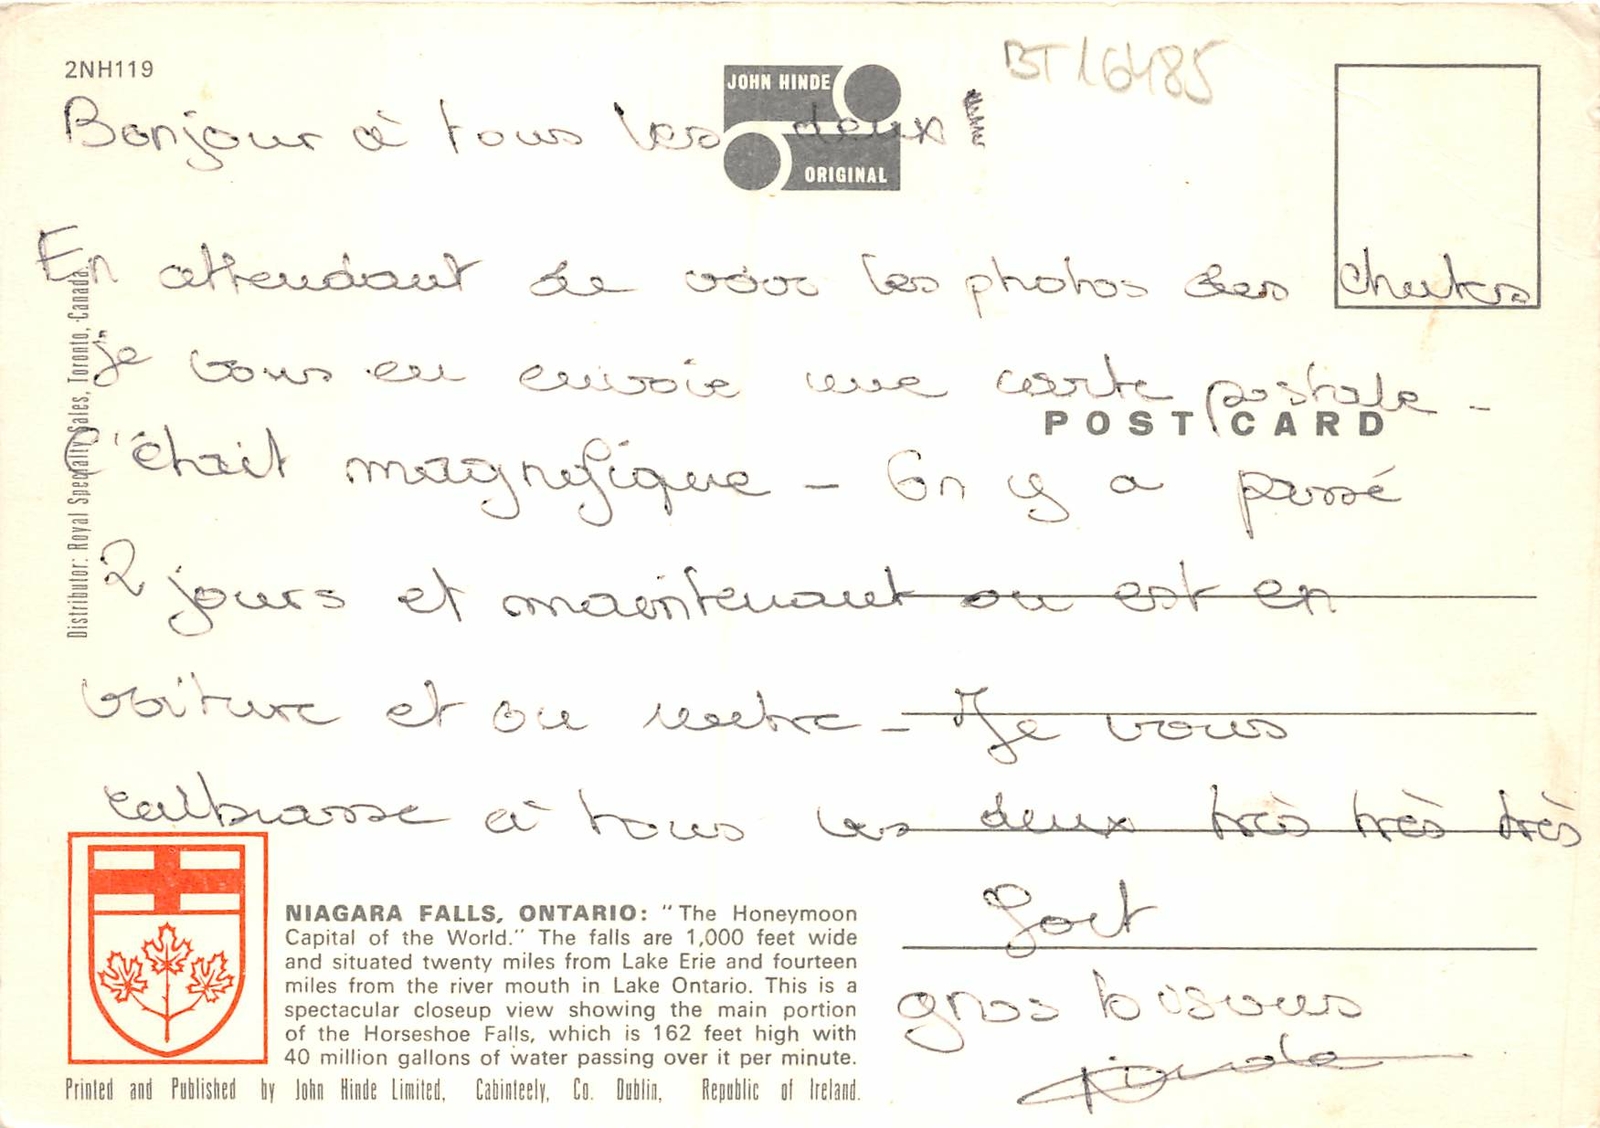 2NH119
JOHN HINDE
ORIGINAL
BT16485
Bonjour à tous les deux!
En attendant de voir les photos des chutes
je vous en envoie une carte postale -
POST CARD
C'était magnifique - On y a passé
2 jours et maintenant on est en
voiture et on rentre - Je vous
embrasse à tous les deux très très très
fort
gros bisous
Distributor: Royal Specialty Sales, Toronto, Canada.
NIAGARA FALLS, ONTARIO: "The Honeymoon
Capital of the World." The falls are 1,000 feet wide
and situated twenty miles from Lake Erie and fourteen
miles from the river mouth in Lake Ontario. This is a
spectacular closeup view showing the main portion
of the Horseshoe Falls, which is 162 feet high with
40 million gallons of water passing over it per minute.
Printed and Published by John Hinde Limited, Cabinteely, Co. Dublin, Republic of Ireland.